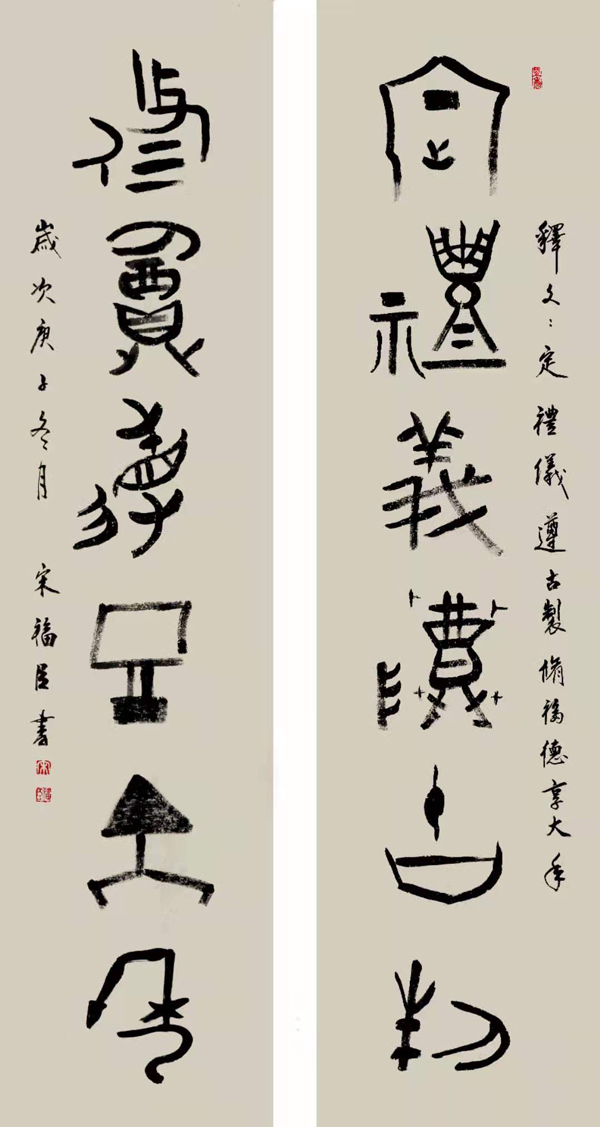 釋文：定禮儀遵古製脩福德享大年
定禮義遵古制
脩福德享大年
歲次庚子冬月 宋福臣書